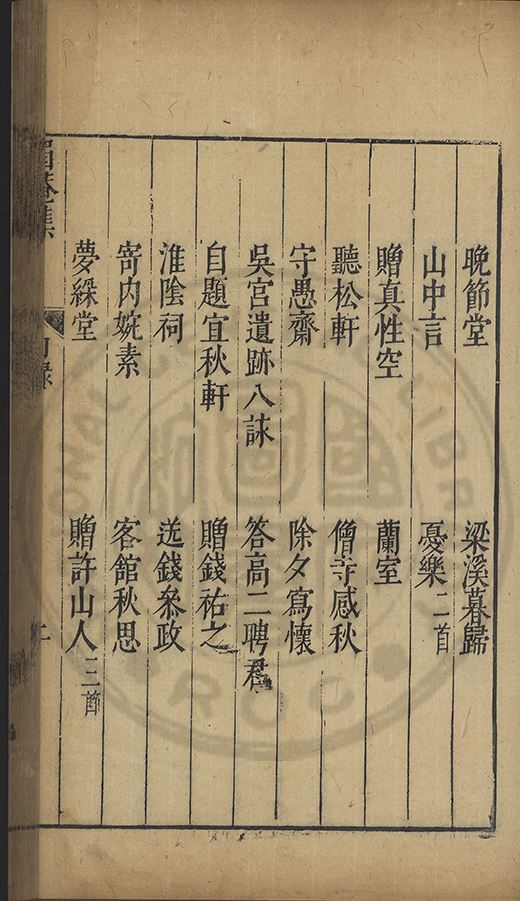 晚節堂 梁溪暮歸
山中言 憂樂二首
贈真性空 蘭室
聽松軒 僧寺感秋
守愚齋 除夕寫懷
吳宮遺跡八詠 答高二聘君
自題宜秋軒 贈錢祐之
淮陰祠 送錢叅政
寄内婉素 客館秋思
夢綵堂 贈許山人二首
目錄 二